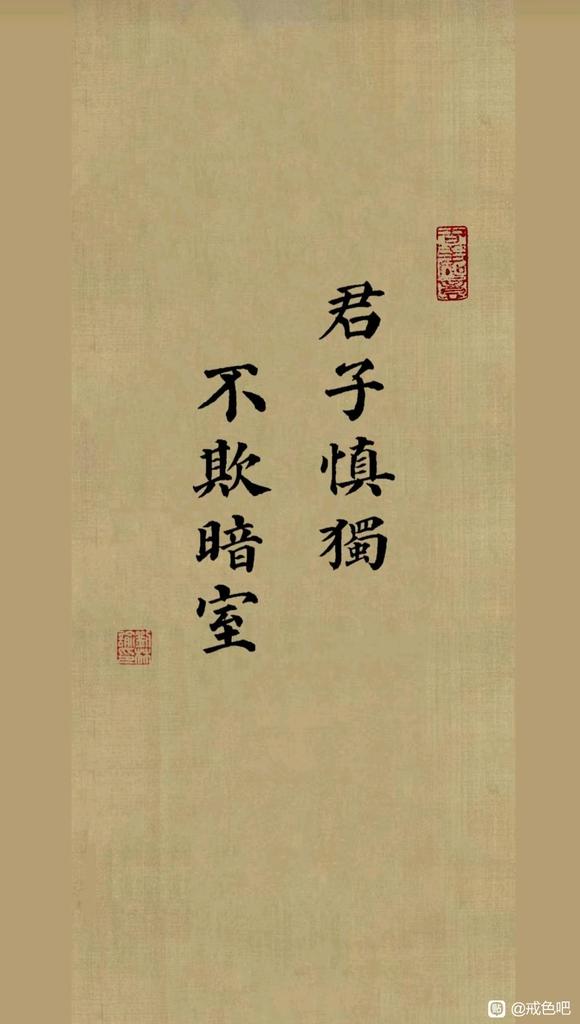 君子慎獨
不欺暗室
@戒色吧